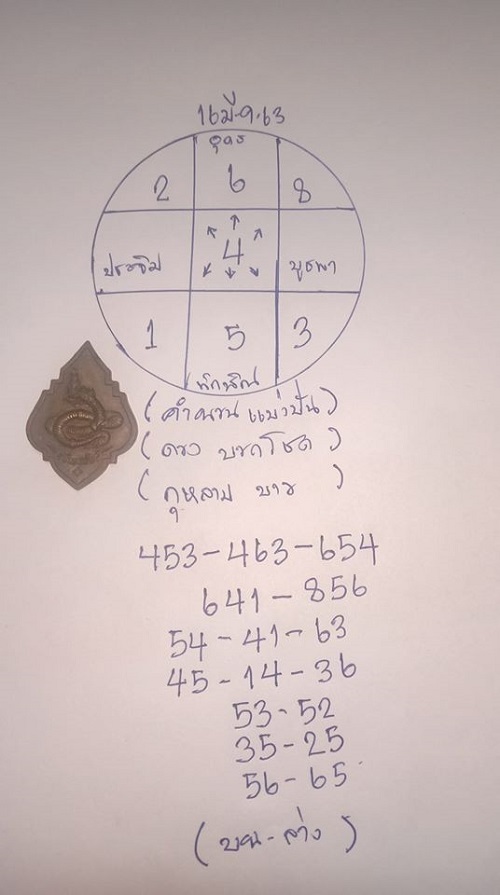 16 มี.ค. 63
อุดร
2 6 8
4
ประจิม บูรพา
1 5 3
ทักษิณ
(คำนวน แม่นปั้น)
(ดวง บวกโชค)
(กุหลาบ ขาว)
453-463-654
641-856
54-41-63
45-14-36
53-52
35-25
56-65
(บน-ล่าง)